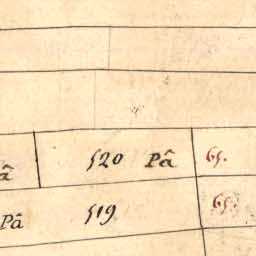 520 Pâ 65.
â
Pâ 519 65.